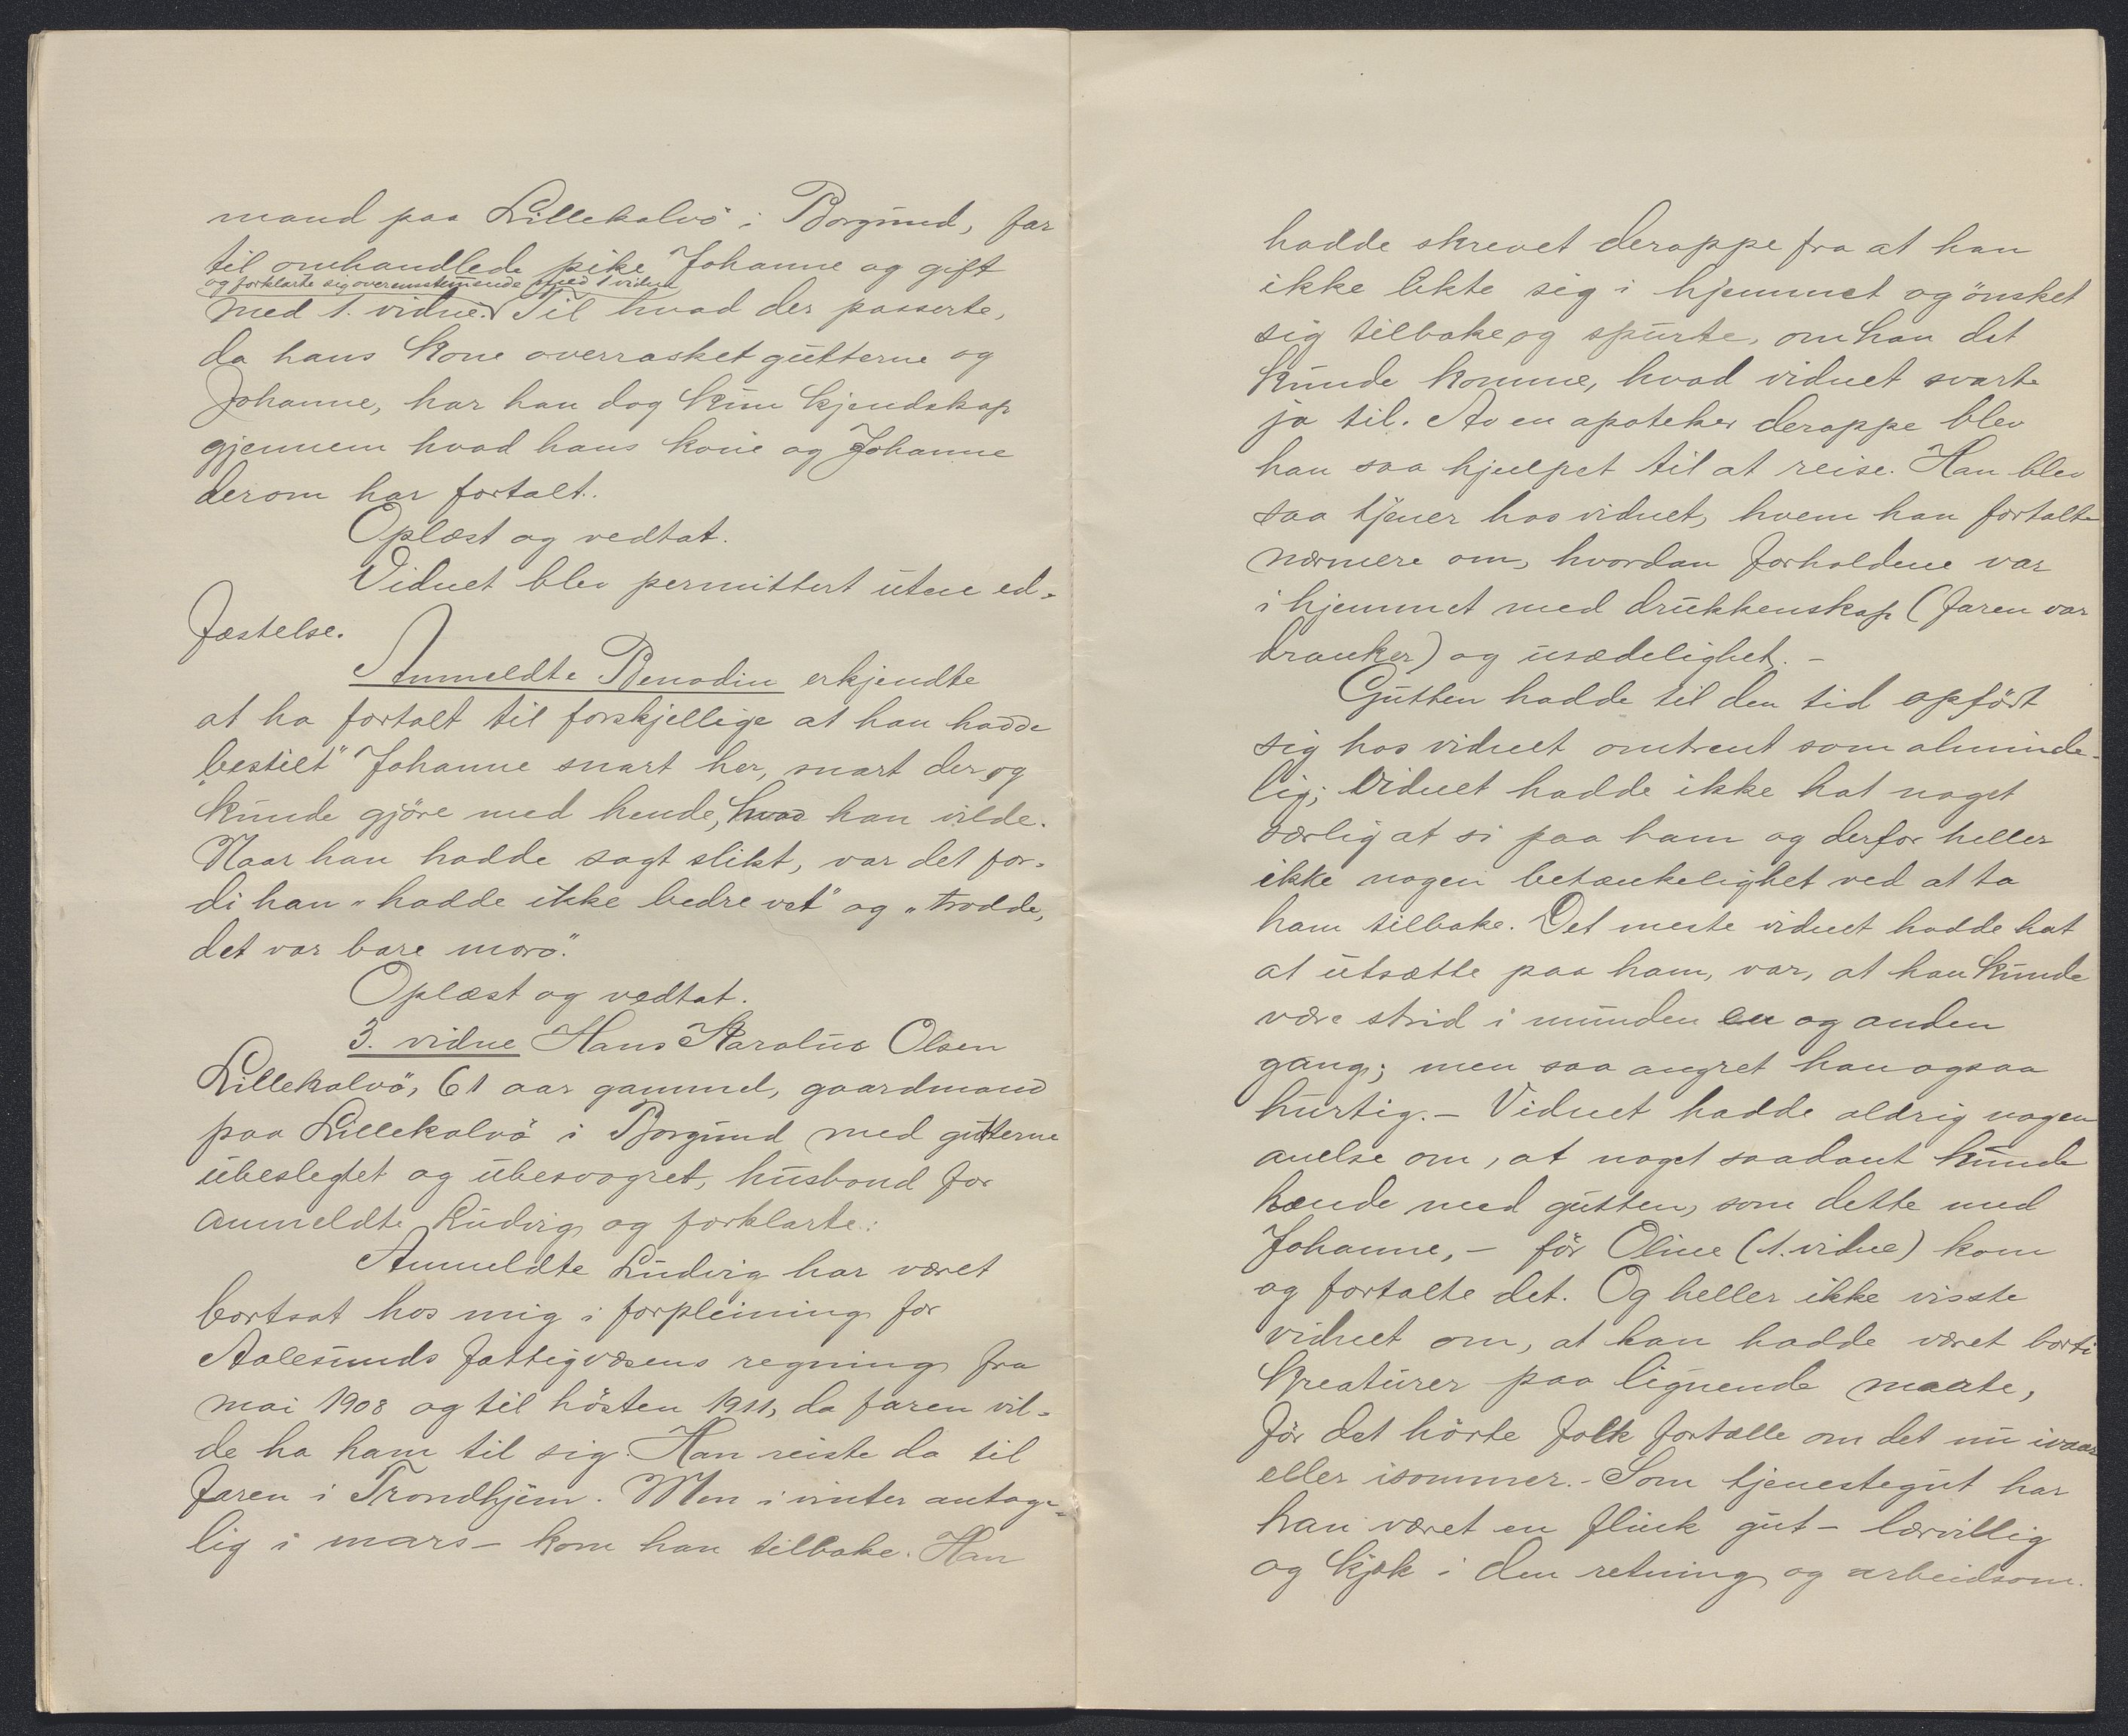 mand paa Lillekalvö i Borgund, far
til omhandlede pike Johanne og gift
og forklarte sig overensstemmende med 1 vidne
med 1. vidne. Til hvad der passerte,
da hans kone overrasket gutterne og
Johanne, har han dog kun kjendskap
gjennem hvad hans kone og Johanne
derom har fortalt.
Oplæst og vedtat.
Vidnet blev permittert uten ed-
fæstelse.
Anmeldte Benodin erkjendte
at ha fortalt til forskjellige at han hadde
„bestilt" Johanne snart her, snart der og
kunde gjöre med hende, hvad han vilde.
Naar han hadde sagt slikt, var det for-
di han „hadde ikke bedre vet" og „trodde,
det var bare moro".
Oplæst og vedtat.
3. vidne Hans Karolus Olsen
Lillekalvö, 61 aar gammel, gaardmand
paa Lillekalvö i Borgund med gutterne
ubeslegtet og ubesvogret, husbond for
anmeldte Ludvig og forklarte:
Anmeldte Ludvig har været
bortsat hos mig i forpleining for
Aalesunds fattigvæsens regning fra
mai 1908 og til hösten 1911, da faren vil-
de ha ham til sig. Han reiste da til
faren i Trondhjem. Men i vinter antage-
lig i mars – kom han tilbake. Han
hadde skrevet deroppe fra at han
ikke likte sig i hjemmet og önsket
sig tilbake og spurte, om han det
kunde komme, hvad vidnet svarte
ja til. Av en apoteker deroppe blev
han saa hjulpet til at reise. Han blev
saa tjener hos vidnet, hvem han fortalte
nærmere om, hvordan forholdene var
i hjemmet med drukkenskap (faren var
dranker) og usædelighet. –
Gutten hadde til den tid opfört
sig hos vidnet omtrent som alminde-
lig; vidnet hadde ikke hat noget
særlig at si paa ham og derfor heller
ikke nogen betænkelighet ved at ta
ham tilbake. Det meste vidnet hadde hat
at utsætte paa ham, var, at han kunde
være strid i munden en og anden
gang; men saa angret han ogsaa
hurtig. – Vidnet hadde aldrig nogen
anelse om, at noget saadant kunde
hænde med gutten, som dette med
Johanne, – för Oline (1. vidne) kom
og fortalte det. Og heller ikke visste
vidnet om, at han hadde været borti
kreaturer paa lignende maate,
för det hörte folk fortælle om det nu ivaar
eller isommer. – Som tjenestegut har
han været en flink gut – lærvillig
og kjæk i den retning og arbeidsom.